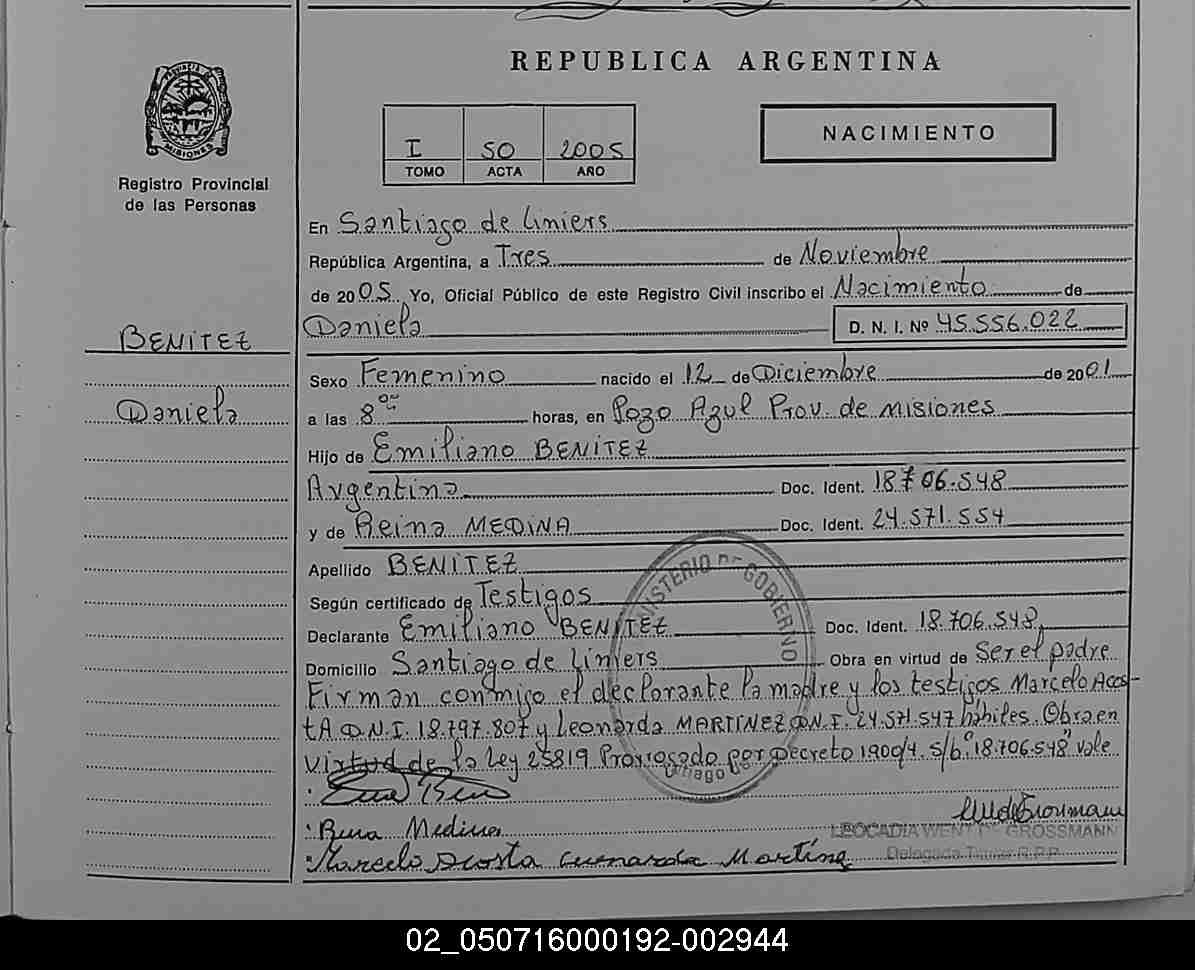 REPUBLICA ARGENTINA
PROVINCIA DE
MISIONES
Registro Provincial
de las Personas
I 50 2005
TOMO ACTA AÑO
NACIMIENTO
En Santiago de Liniers
República Argentina, a Tres de Noviembre
de 2005 Yo, Oficial Público de este Registro Civil inscribo el Nacimiento de
Daniela D. N. I. Nº 45.556.022
BENITEZ
Daniela
Sexo Femenino nacido el 12 de Diciembre de 2001
a las 8 horas, en Pozo Azul Prov. de Misiones
Hijo de Emiliano BENITEZ
Argentina Doc. Ident. 18.706.548
y de Reina MEDINA Doc. Ident. 24.571.554
Apellido BENITEZ
Según certificado de Testigos
Declarante Emiliano BENITEZ Doc. Ident. 18.706.548
Domicilio Santiago de Liniers Obra en virtud de Ser el padre
Firman conmigo el declarante la madre y los testigos Marcelo Acos-
tA D.N.I. 18.797.807 y Leonarda MARTINEZ D.N.I. 24.571.547 hábiles. Obra en
virtud de la Ley 25819 Prorrogado por Decreto 1900/4. S/b "18.706.548" vale
MINISTERIO DE GOBIERNO
Reina Medina
Marcelo Acosta Leonarda Martínez
LEOCADIA WENT DE GROSSMANN
Delegada Titular R.P.P.
02_050716000192-002944